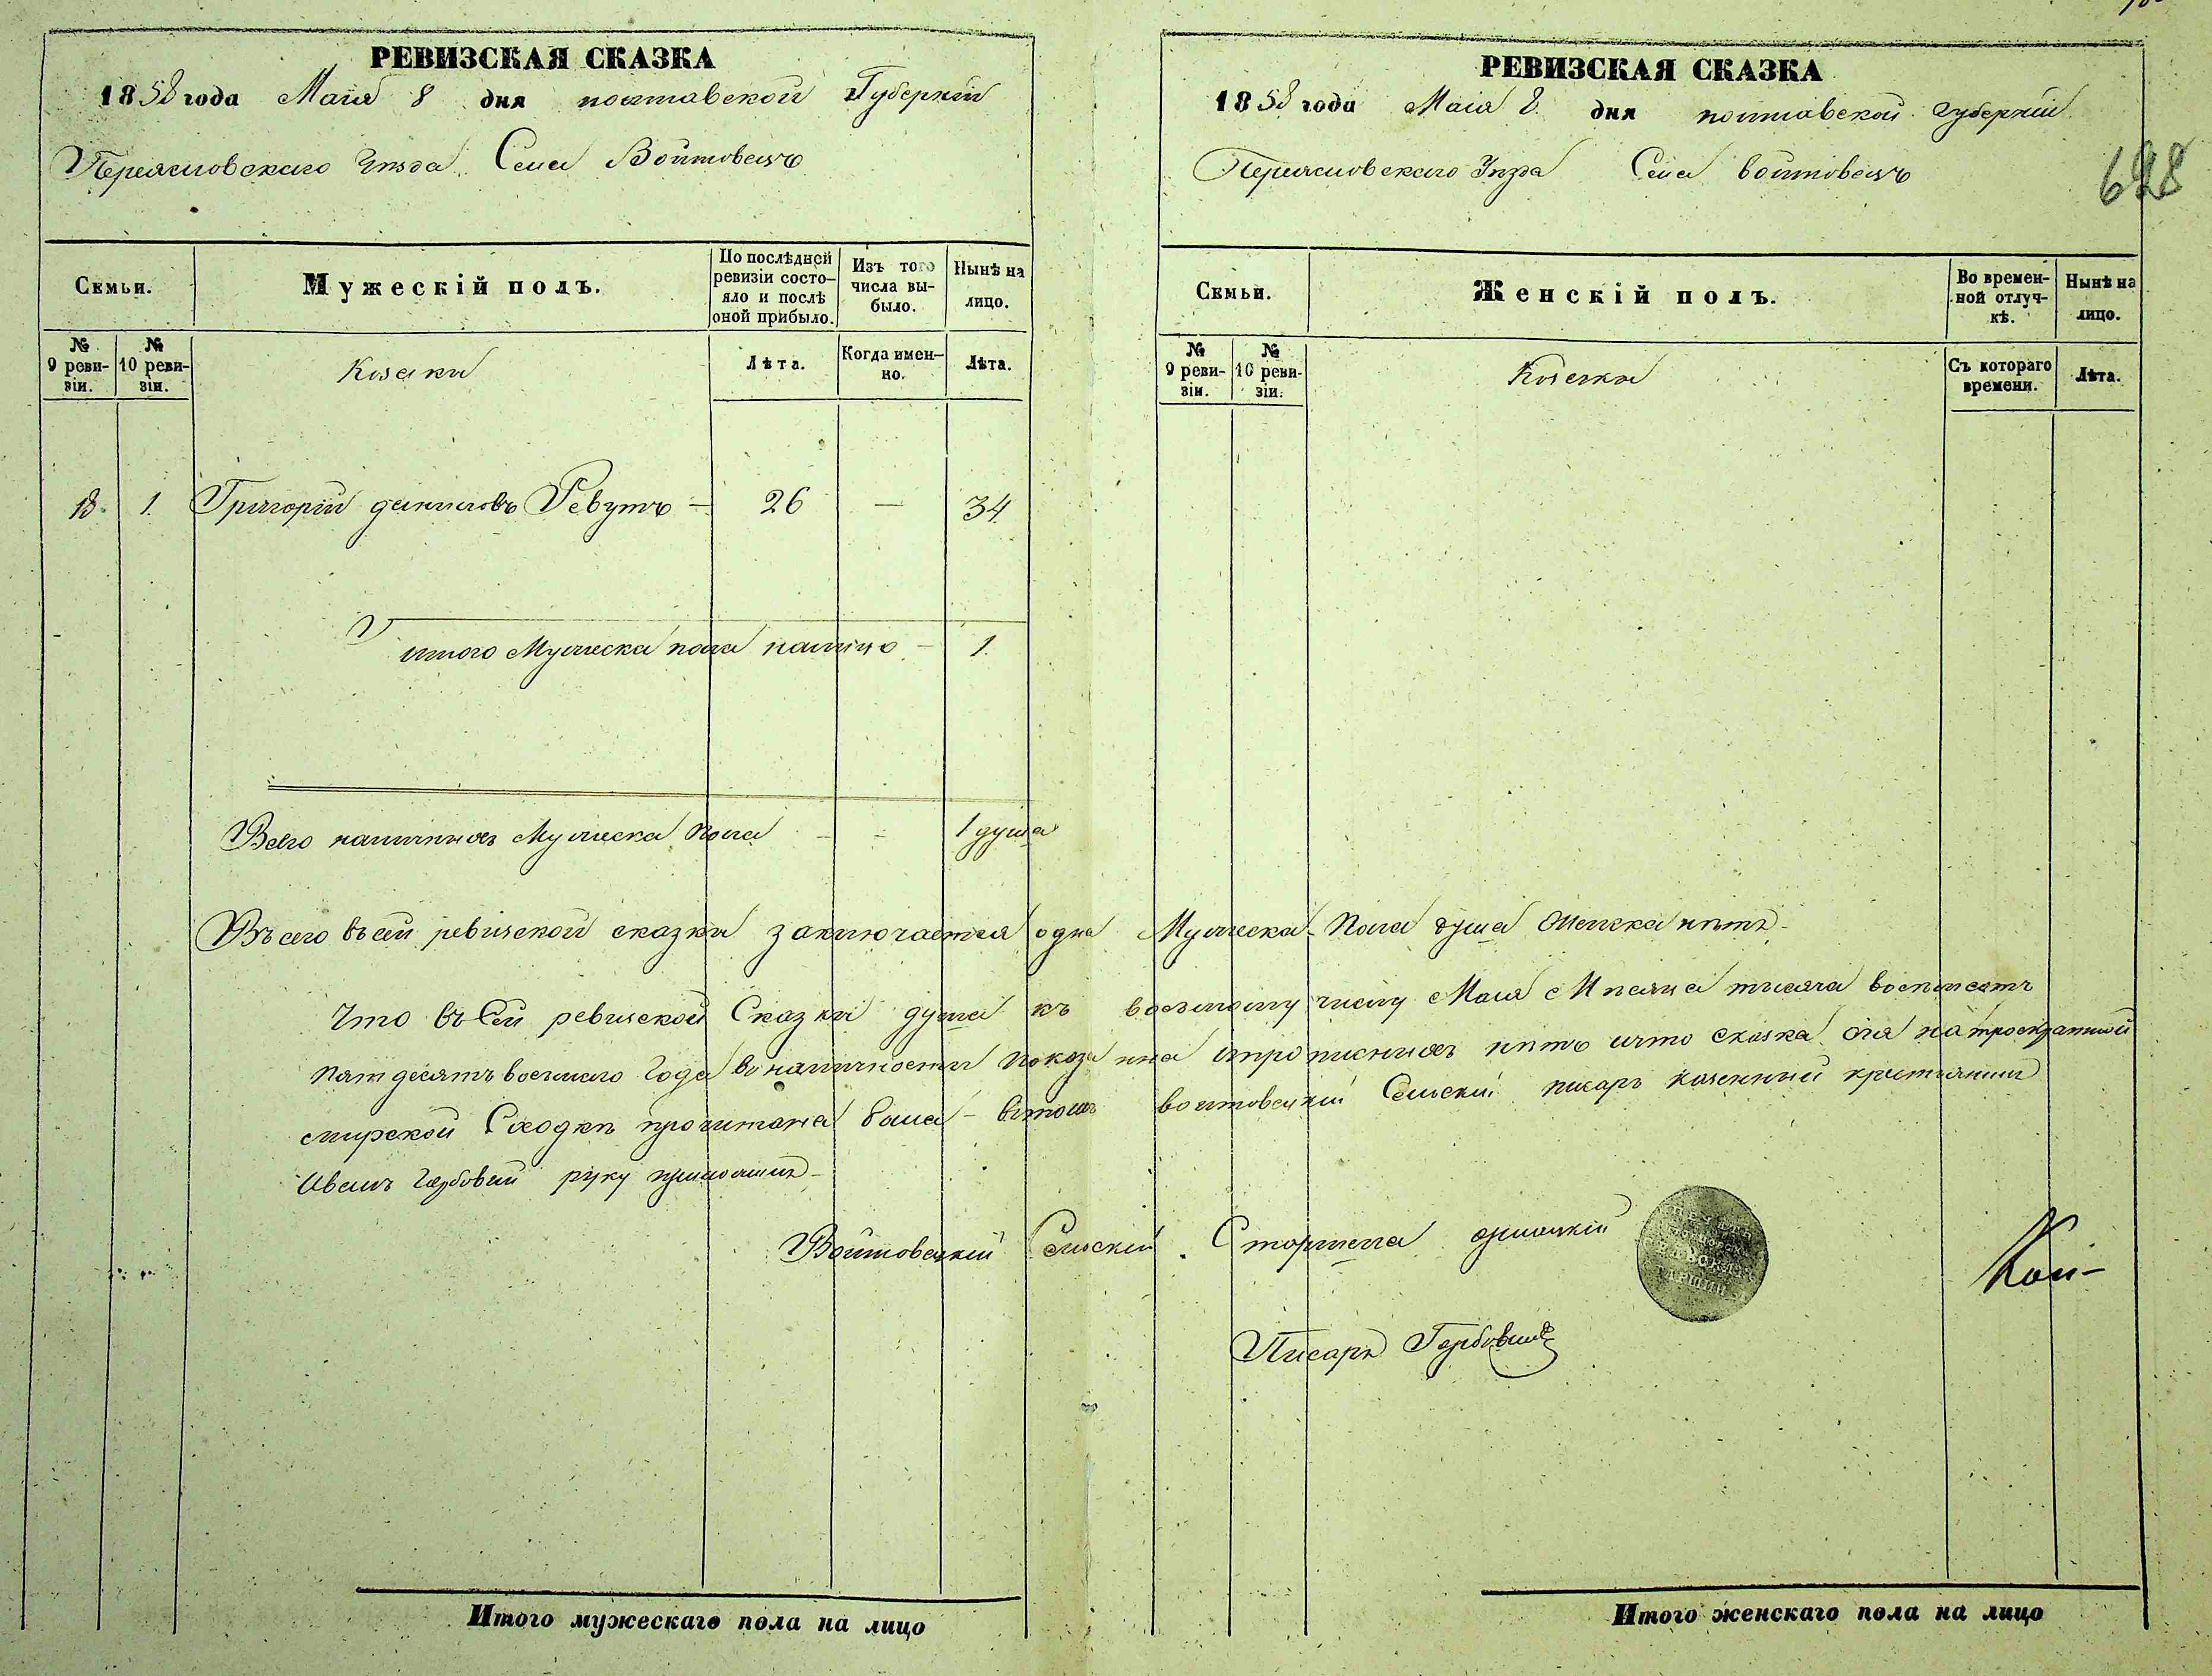 РЕВИЗСКАЯ СКАЗКА
1858 года Маія 8 дня полтавской Губерніи
Переясловскаго Уезда Села Войтовецъ
Семьи.
Мужескій полъ.
По послѣдней ревизіи состояло и послѣ оной прибыло.
Изъ того числа выбыло.
Нынѣ на лицо.
№ 9 ревизіи.
№ 10 ревизіи.
Козаки
Лѣта.
Когда именно.
Лѣта.
18. 1. Григорій даниловъ Ревутъ — 26 — 34
итого Мужеска пола налицо — 1.
Всего наличныхъ Мужеска Пола — — 1 душа
Въсего въсей ревизской сказки заключается одна Мужеска Пола душа Женска нетъ
Что въ Сей ревизской Сказки душа къ восьмому числу Маія Месяца тысяча восемсотъ
пятдесятъ восмаго Года вналичности показанна ипрописныхъ нетъ ичто сказка сія на
мирской Сходке прочитана была — втомъ войтовецкій Сельский писарь казенный крестьянинъ
Иванъ Гербовий руку приложилъ
Войтовецкій Сельскій Старшена
Писарь Гербовий
РЕВИЗСКАЯ СКАЗКА
1858 года Маія 8 дня полтавской Губерніи
Переясловскаго Уезда Села войтовецъ
628
Семьи.
Женскій полъ.
Во временной отлучкѣ.
Нынѣ на лицо.
№ 9 ревизіи.
№ 10 ревизіи.
Козачки
Съ котораго времени.
Лѣта.
Итого мужескаго пола на лицо
Итого женскаго пола на лицо